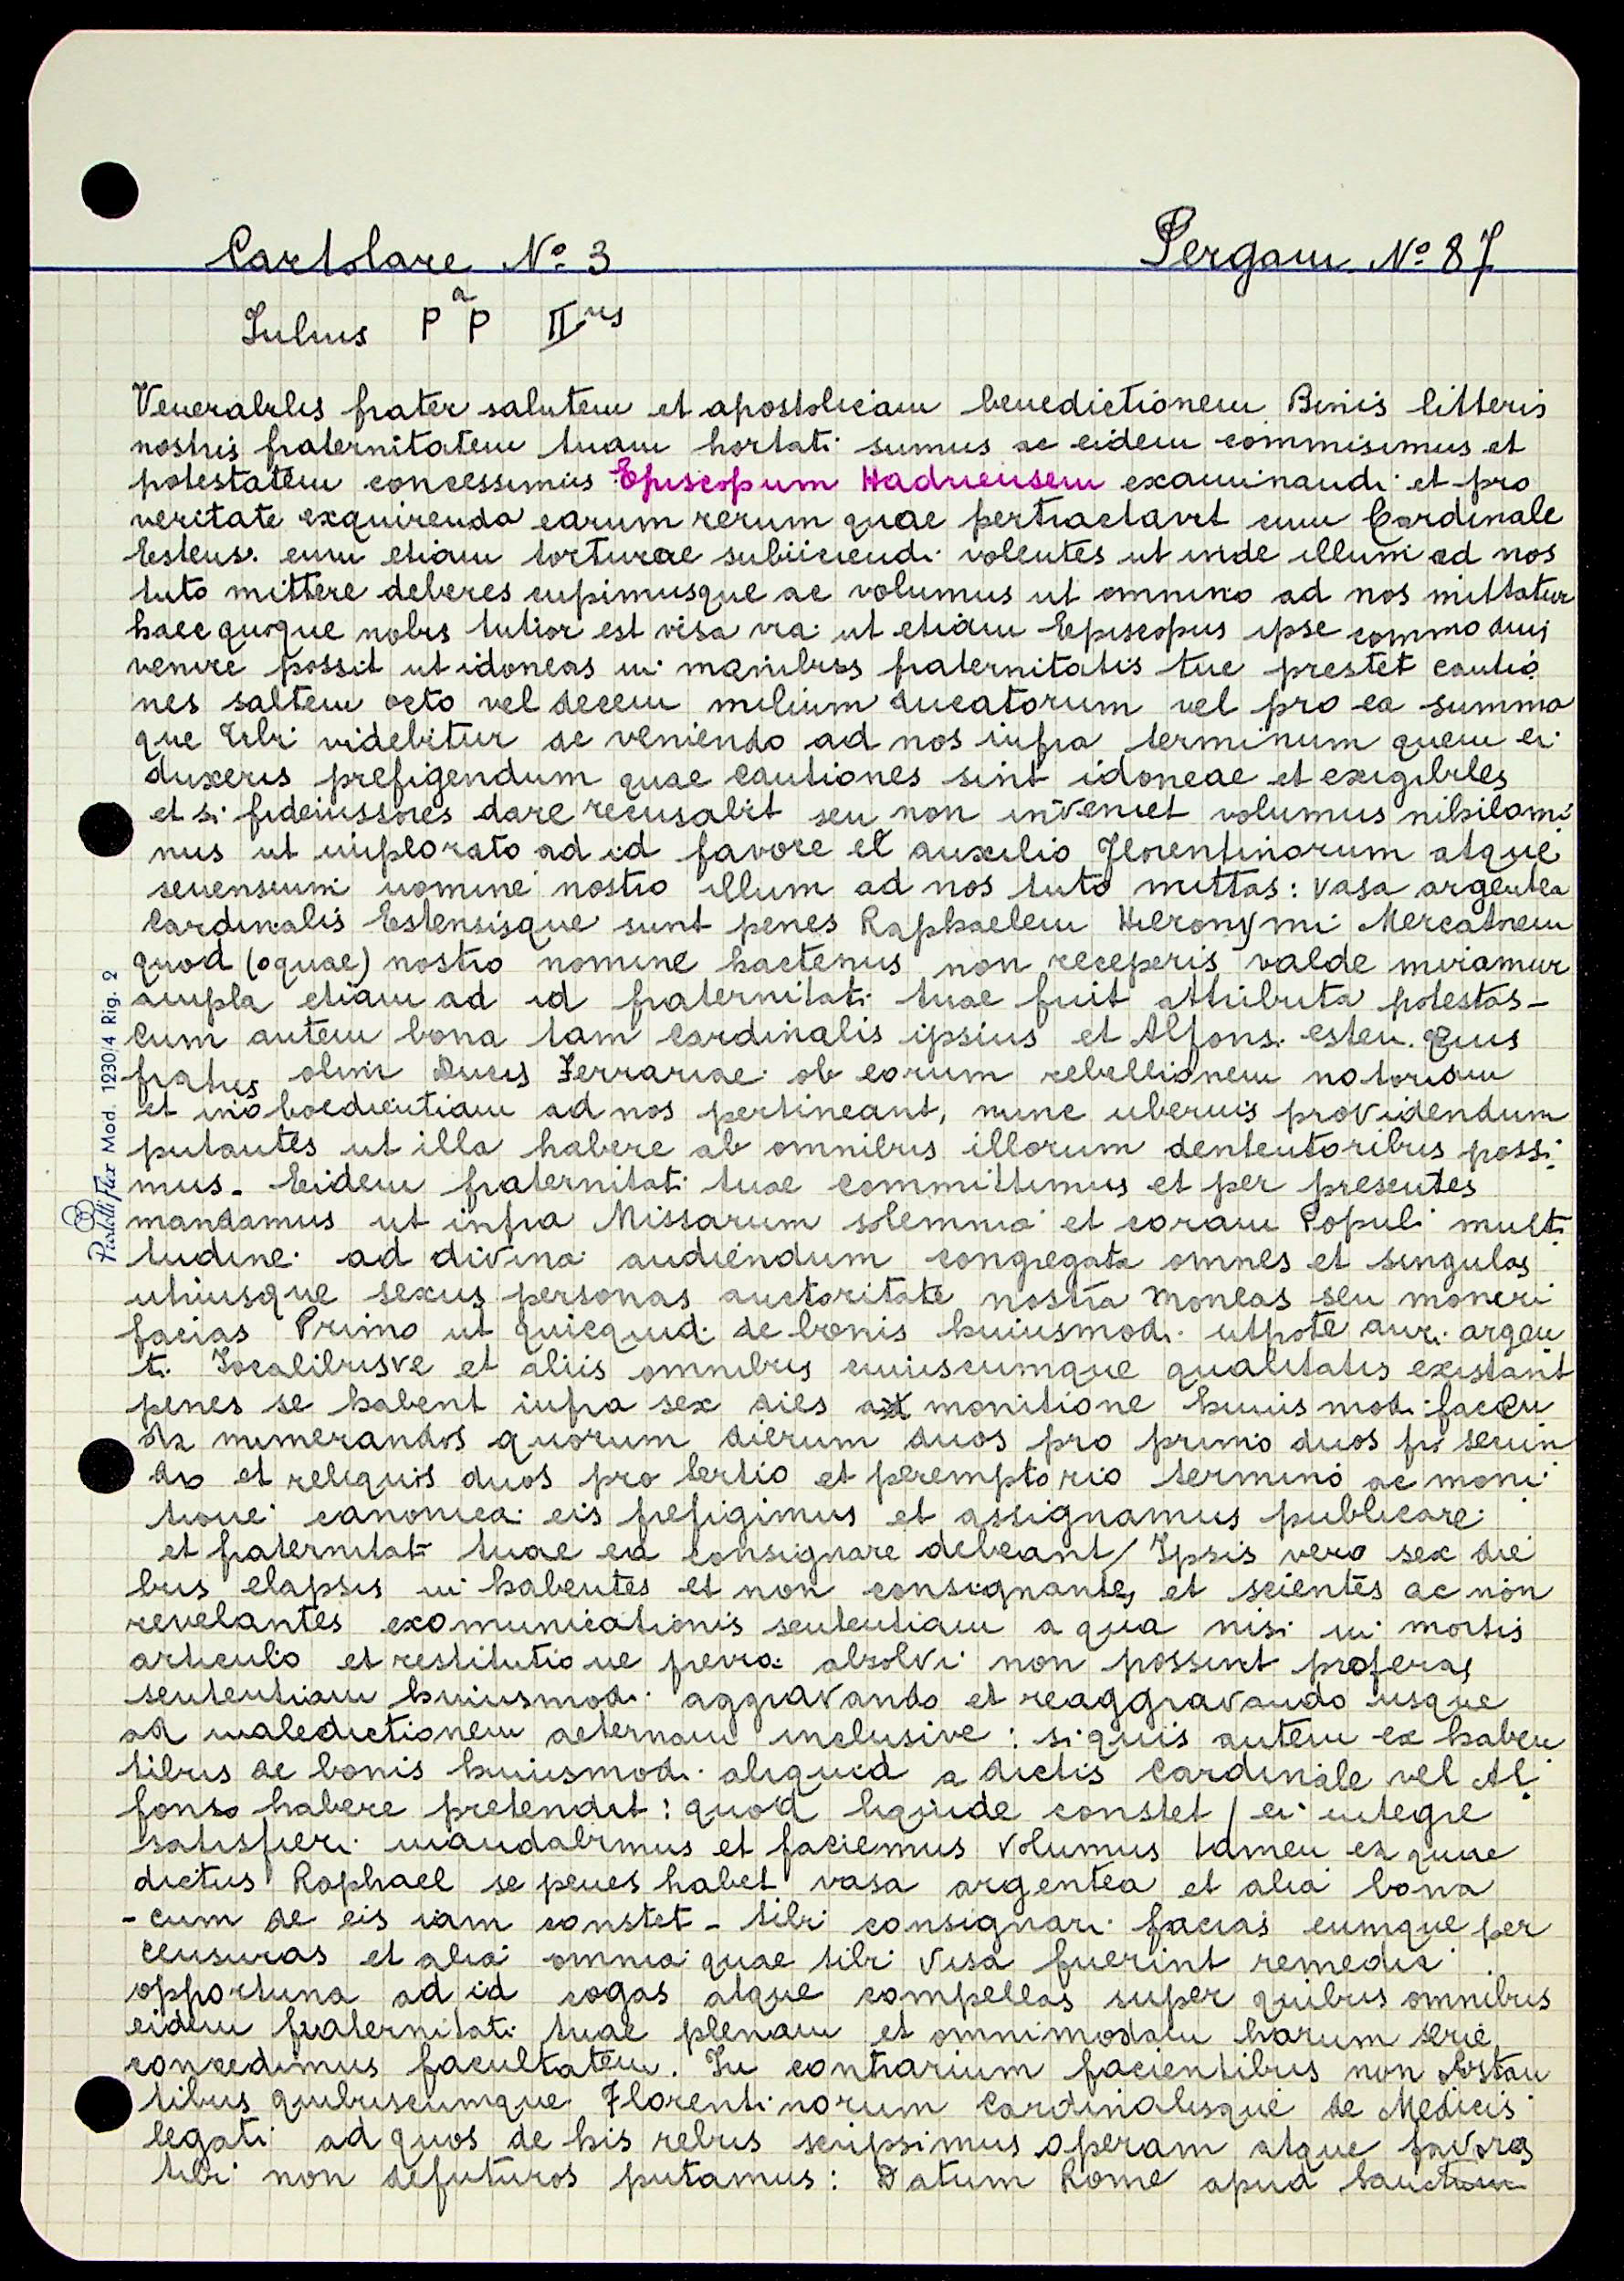 Cartolare N° 3 Pergam. N° 87
Iulius PaP IIus
Venerabilis frater salutem et apostolicam benedictionem Binis litteris
nostris fraternitatem tuam hortati sumus ac eidem commisimus et
potestatem concessimus Episcopum Hadriensem examinandi et pro
veritate exquirenda earum rerum quae pertractavit cum Cardinale
Estens. eum etiam torturae subiiciendi volentes ut inde illum ad nos
tuto mittere deberes cupimusque ac volumus ut omnino ad nos mittatur
haec quoque nobis tutior est visa via ut etiam Episcopus ipse commodius
venire possit ut idoneas in manibus fraternitatis tue prestet cautio
nes saltem octo vel decem milium ducatorum vel pro ea summa
que tibi videbitur de veniendo ad nos infra terminum quem ei
duxeris prefigendum quae cautiones sint idoneae et exigibiles
et si fideiussores dare recusabit seu non inveniet volumus nihilomi
nus ut implorato ad id favore et auxilio Florentinorum atque
senensium nomine nostro illum ad nos tuto mittas: vasa argentea
Cardinalis Estensisque sunt penes Raphaelem Hieronymi Mercatorem
quod (o quae) nostro nomine hactenus non receperis valde miramur
ampla etiam ad id fraternitati tuae fuit attributa potestas -
cum autem bona tam Cardinalis ipsius et Alfons. esten. eius
fratris olim Ducis Ferrariae ob eorum rebellionem notoriam
et inoboedientiam ad nos pertineant, nunc uberius providendum
putantes ut illa habere ab omnibus illorum dententoribus possi
mus. Eidem fraternitati tuae committimus et per presentes
mandamus ut infra Missarum solemnia et coram Populi multi
tudine ad divina audiendum congregata omnes et singulas
utriusque sexus personas auctoritate nostra moneas seu moneri
facias Primo ut quicquid de bonis huiusmodi utpote auri argen
ti Iocalibusve et aliis omnibus cuiuscumque qualitatis existant
penes se habent infra sex dies a monitione huiusmodi facien
da numerandos quorum dierum duos pro primo duos pro secun
do et reliquis duos pro tertio et peremptorio termino ac moni
tione canonica eis prefigimus et assignamus publicare
et fraternitati tuae ea consignare debeant/ Ipsis vero sex die
bus elapsis in habentes et non consignantes et scientes ac non
revelantes exomunicationis sententiam a qua nisi in mortis
articulo et restitutione previa absolvi non possint proferas
sententiam huiusmodi aggravando et reaggravando usque
ad maledictionem aeternam inclusive: si quis autem ex haben
tibus de bonis huiusmodi aliquid a dictis Cardinale vel Al
fonso habere pretendit: quod liquide constet / ei integre
satisfieri mandabimus et faciemus Volumus tamen ea quae
dictus Raphael se penes habet vasa argentea et alia bona
- cum de eis iam constet - tibi consignari facias eumque per
censuras et alia omnia quae tibi visa fuerint remedia
opportuna ad id cogas atque compellas super quibus omnibus
eidem fraternitati tuae plenam et omnimodam harum serie
concedimus facultatem. In contrarium facientibus non obstan
tibus quibuscumque Florentinorum Cardinalisque de Medicis
legati ad quos de his rebus scripsimus operam atque favores
tibi non defuturos putamus: Datum Rome apud Sanctum
Pigna Mod. 1230/4 Rig. 2